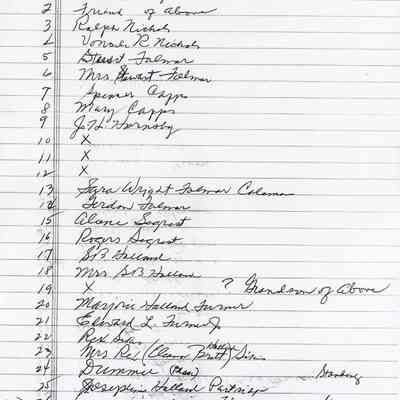 2 Friend of above
3 Ralph Nichols
4 Vonnie R. Nichols
5 Stewart Folmar
6 Mrs Stewart Folmar
7 Spencer Capps
8 Mary Capps
9 J.H. Hornsby
10 X
11 X
12 X
13 Sara Wright Folmar Coleman
14 Gordon Folmar
15 Alane Segrest
16 Rogers Segrest
17 S.B. Holland
18 Mrs S.B. Holland
19 X ? Grandson of Above
20 Marjorie Holland Turner
21 Edward L. Turner Jr
22 Rex
23 Mrs Rex (Eleanor Pratt)
24 Dummie Standing
25 Josephine Holland
26